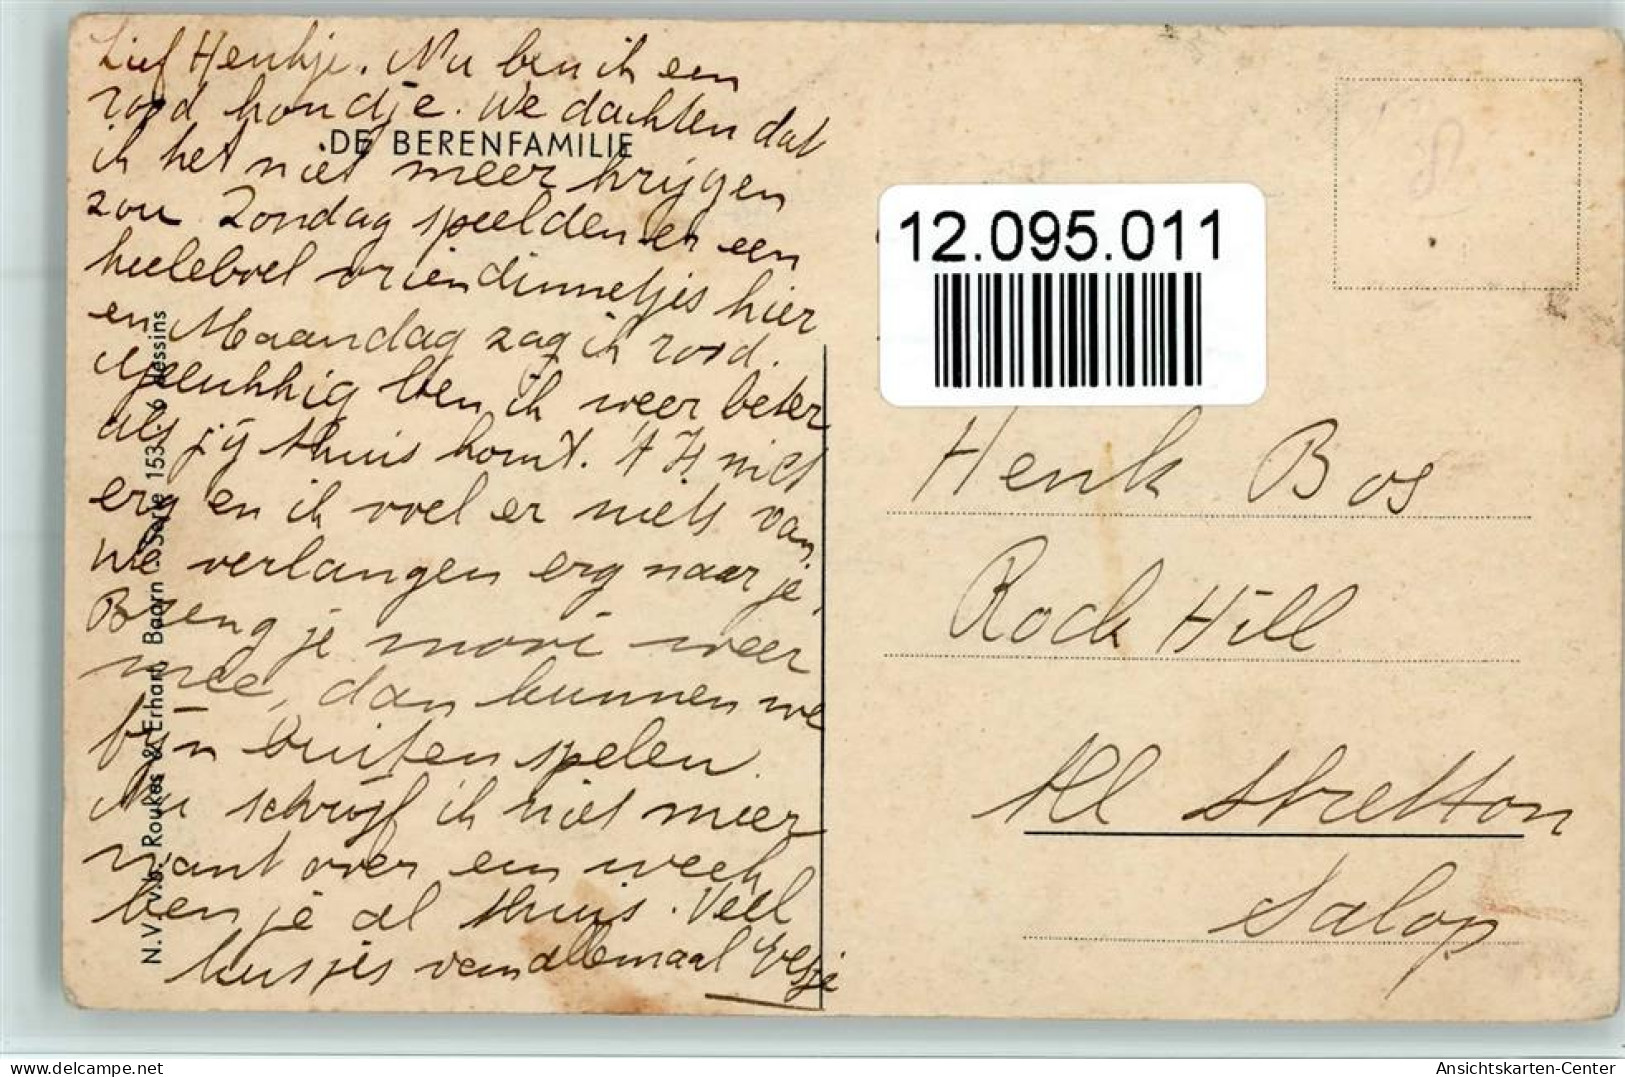 Lief Henkje. Nu ben ik een
rood hondje. We dachten dat
DE BERENFAMILIE
ik het niet meer krijgen
zou Zondag speelden er een
heleboel vriendinnetjes hier
en Maandag zag ik rood.
Gelukkig ben ik weer beter
als jij thuis komt. 't Is niet
erg en ik voel er niets van
We verlangen erg naar je.
Breng je mooi weer
mee, dan kunnen we
fijn buiten spelen.
Nu schrijf ik niet meer
want over een week
ben je al thuis. Veel
kusjes van allemaal Elsje
N.V. v.h. Roukes & Erhart Baarn
Serie 153
12.095.011
Henk Bos
Rock Hill
All Stretton
Salop
Ansichtskarten-Center